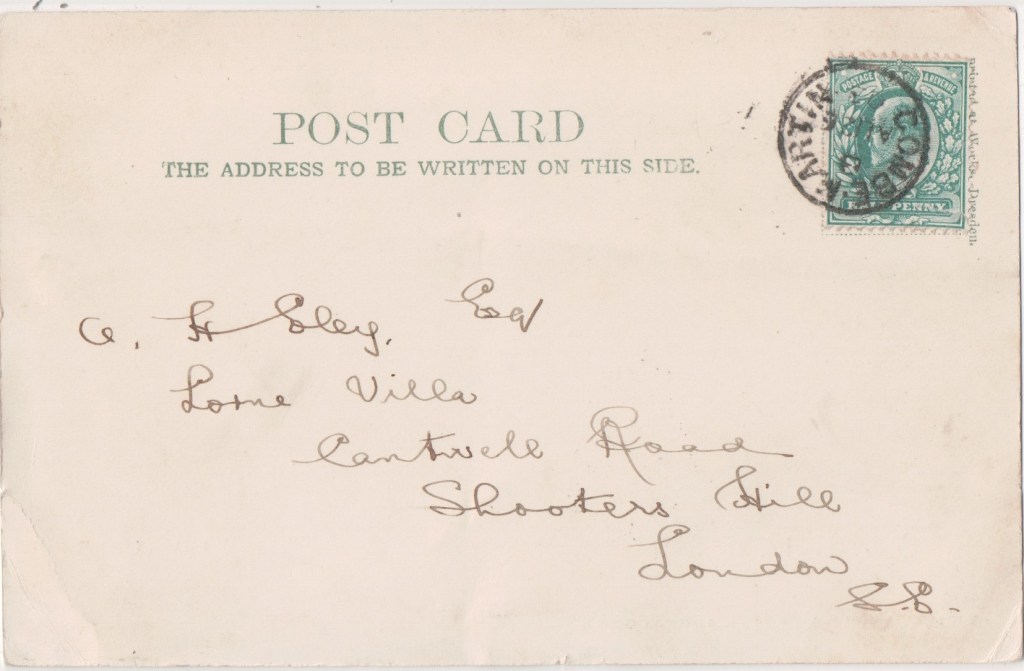 POST CARD
THE ADDRESS TO BE WRITTEN ON THIS SIDE.
POSTAGE & REVENUE
COMBE MARTIN
HALFPENNY
Dresden.
A. H Eley, Esq
Lorne Villa
Cantwell Road
Shooters Hill
London
S.E.